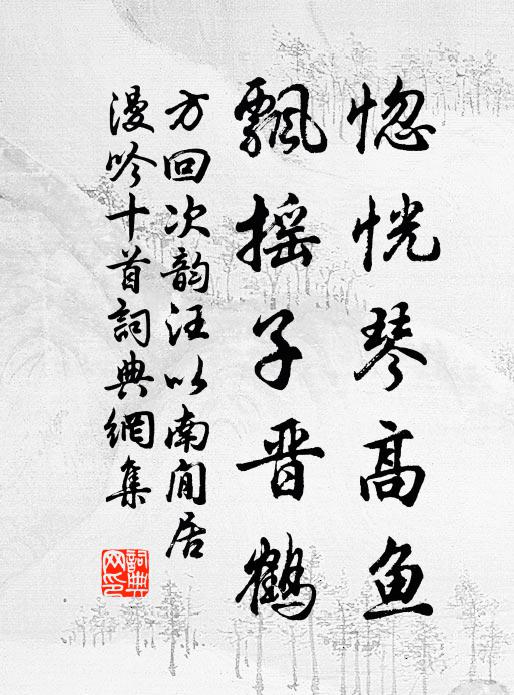 惚恍琴高鱼
飘摇子晋鹤
方回次韵汪以南闲居
漫吟十首詞典網集
詞典网印